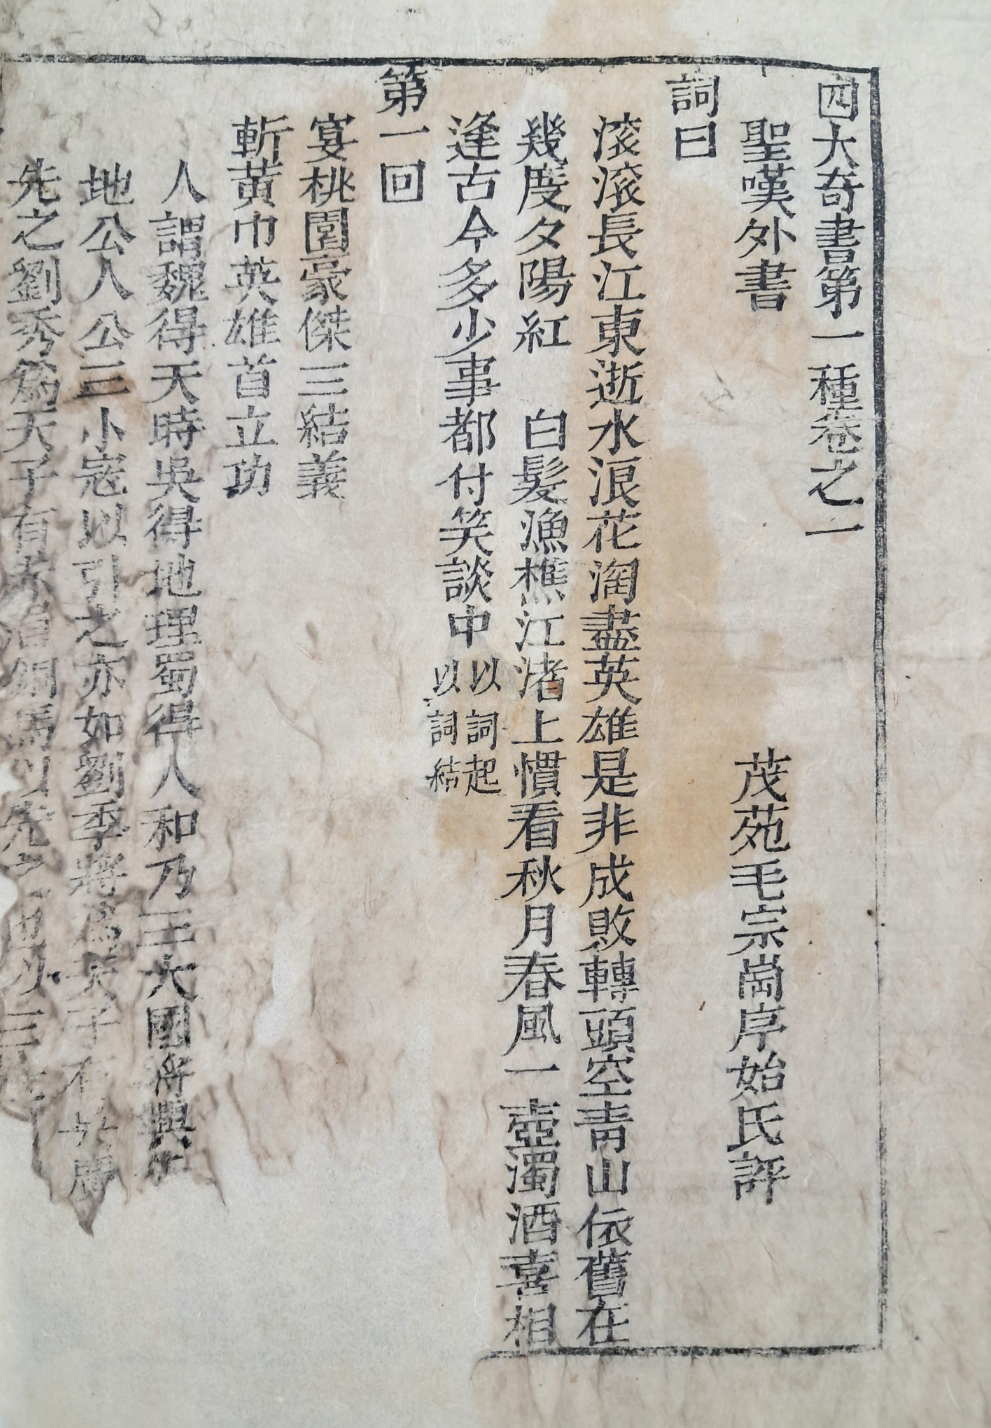 四大奇書第一種卷之一
聖嘆外書　茂苑毛宗崗序始氏評
詞曰
滚滚長江東逝水浪花淘盡英雄是非成敗轉頭空青山依舊在
幾度夕陽紅　白髮漁樵江渚上慣看秋月春風一壺濁酒喜相
逢古今多少事都付笑談中
以詞起
以詞結
第一回
宴桃園豪傑三結義
斬黃巾英雄首立功
人謂魏得天時吳得地理蜀得人和乃三大國將興
地公人公三小寇以引之亦如劉季將爲天子有
先之劉秀爲天子有